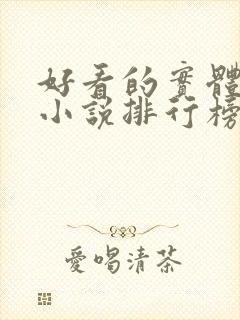 好看的實體
小說排行榜
愛喝清茶